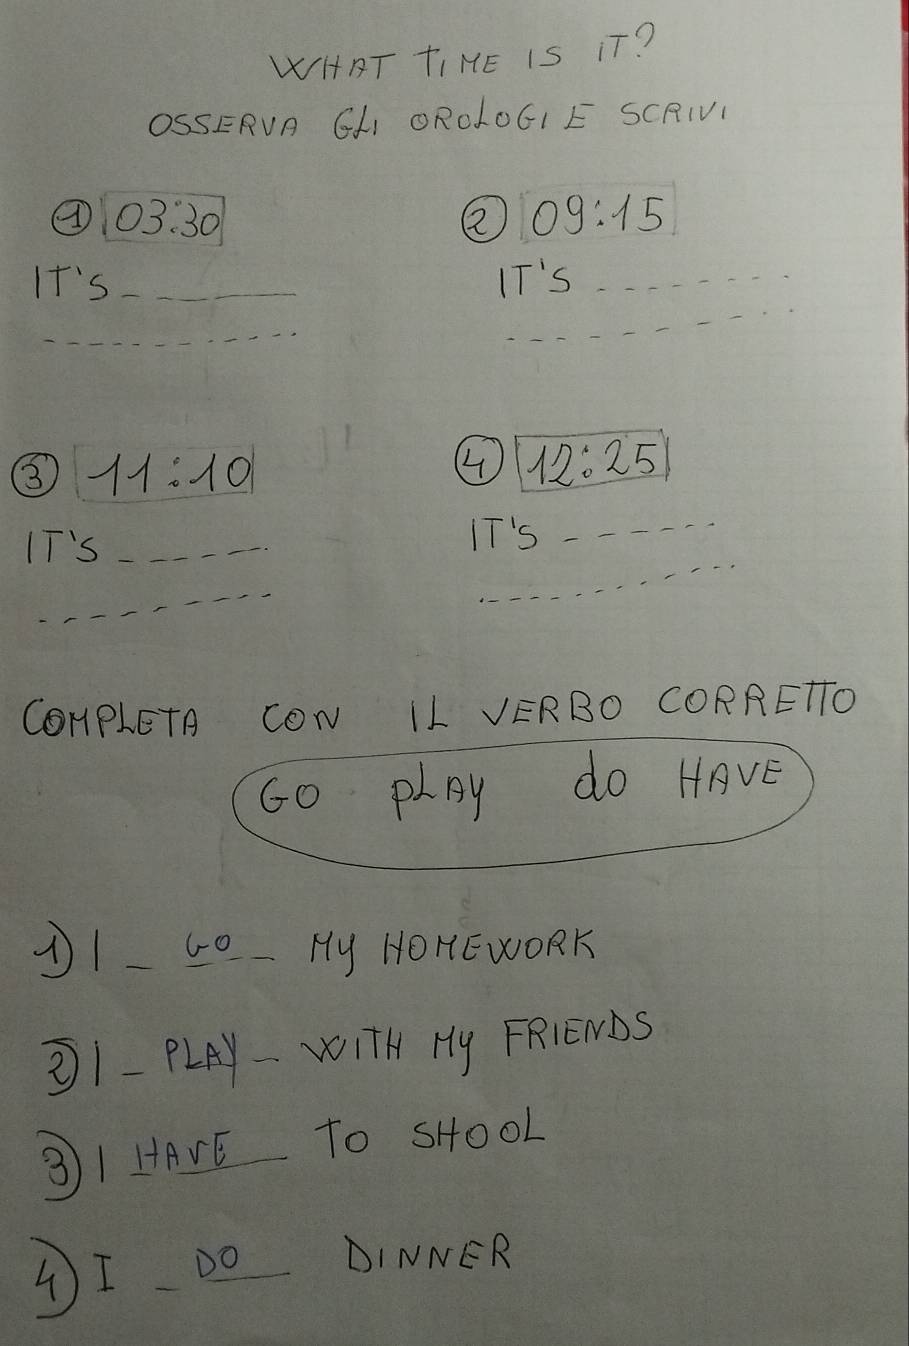 WHAT TIME IS IT?
OSSERVA GLI OROLOGI E SCRIVI
① 03:30
② 09:15
IT'S
IT'S
③ 11:10
④ 12:25
IT'S
IT'S
COMPLETA CON IL VERBO CORRETTO
GO PLAY do HAVE
1) I GO MY HOMEWORK
2) I PLAY WITH MY FRIENDS
3) I HAVE TO SHOOL
4) I DO DINNER